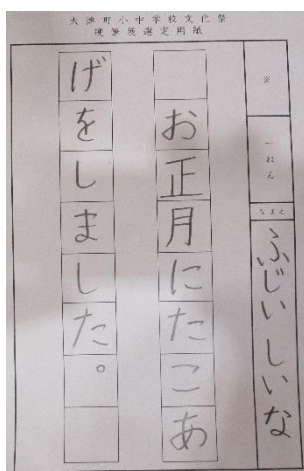 大津町小中学校文化祭
硬筆展選定用紙
※
一ねん
なまえ
ふじい しいな
お正月にたこあ
げをしました。